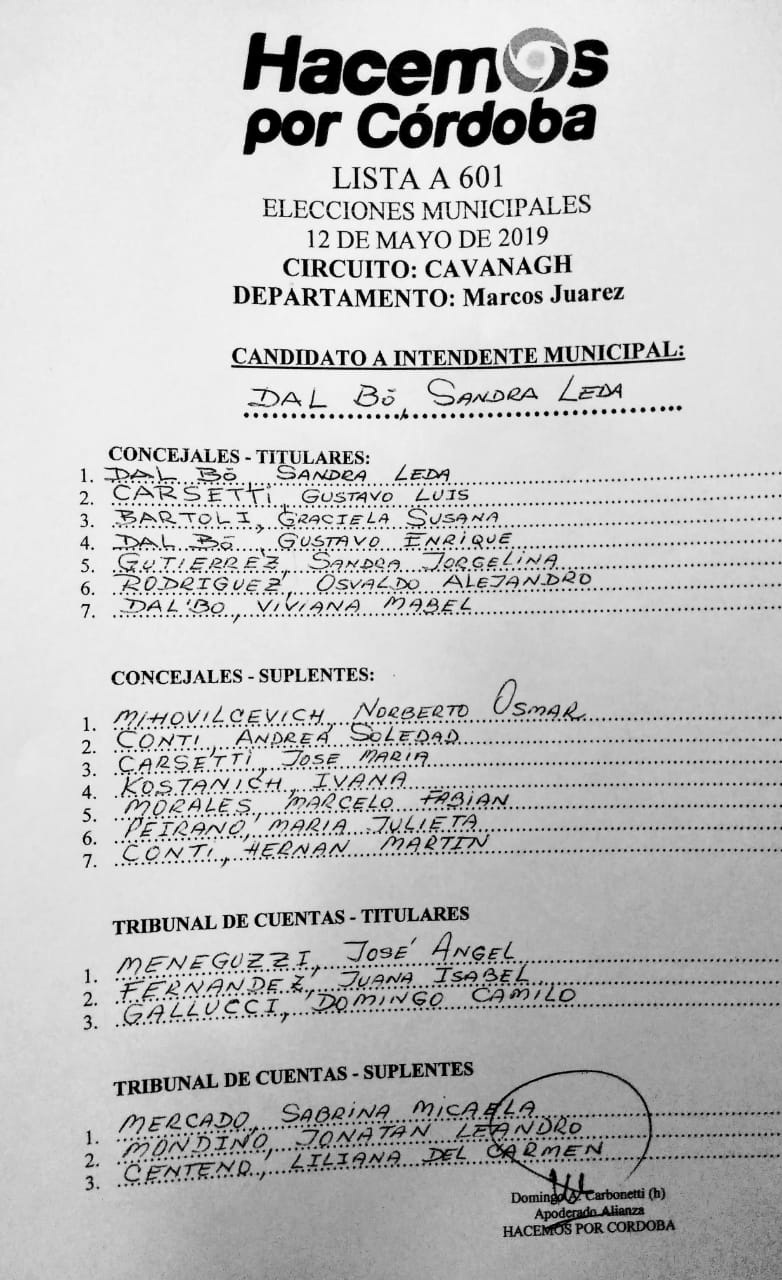 Hacemos
por Córdoba
LISTA A 601
ELECCIONES MUNICIPALES
12 DE MAYO DE 2019
CIRCUITO: CAVANAGH
DEPARTAMENTO: Marcos Juarez
CANDIDATO A INTENDENTE MUNICIPAL:
DAL BÓ SANDRA LEDA
CONCEJALES - TITULARES:
1. DAL BÓ SANDRA LEDA
2. CARSETTI, GUSTAVO LUIS
3. BARTOLI, GRACIELA SUSANA
4. DAL BÓ, GUSTAVO ENRIQUE
5. GUTIERREZ, SANDRA JORGELINA
6. RODRIGUEZ, OSVALDO ALEJANDRO
7. DAL'BO, VIVIANA MABEL
CONCEJALES - SUPLENTES:
1. MIHOVILCEVICH, NORBERTO OSMAR
2. CONTI, ANDREA SOLEDAD
3. CARSETTI, JOSE MARIA
4. KOSTANICH, IVANA
5. MORALES, MARCELO FABIAN
6. PEIRANO, MARIA JULIETA
7. CONTI, HERNAN MARTIN
TRIBUNAL DE CUENTAS - TITULARES
1. MENEGUZZI, JOSÉ ANGEL
2. FERNANDEZ, JUANA ISABEL
3. GALLUCCI, DOMINGO CAMILO
TRIBUNAL DE CUENTAS - SUPLENTES
1. MERCADO, SABRINA MICAELA
2. MONDINO, JONATAN LEANDRO
3. CENTENO, LILIANA DEL CARMEN
Domingo A. Carbonetti (h)
Apoderado Alianza
HACEMOS POR CORDOBA